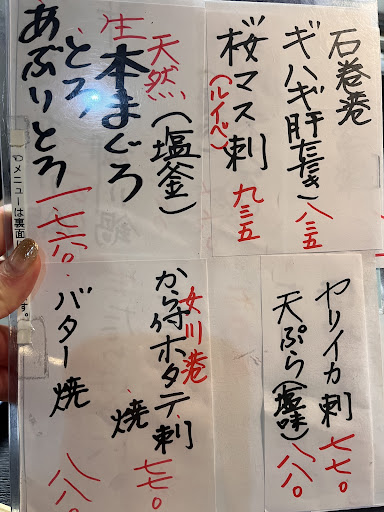 石巻港
ギハギ肝たたき 八三五
桜マス刺
(ルイベ) 九三五
天然 (塩釜)
生本まぐろ
とろ
あぶりとろ 一、七六〇
ヤリイカ刺 七七〇
天ぷら(塩味) 八八〇
女川港
から付ホタテ刺
焼 七七〇
バター焼 八八〇
のメニューは裏面
す。